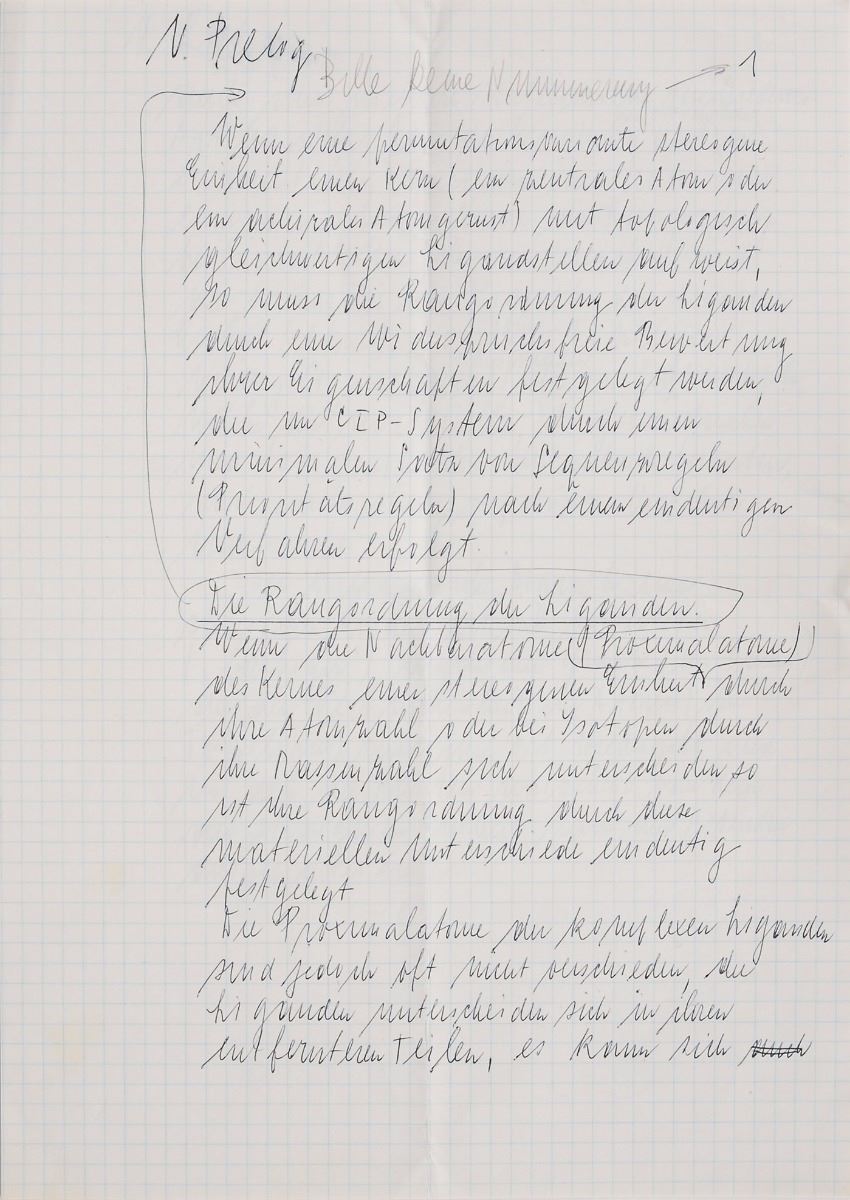 V. Prelog
Bitte keine Nummerierung → 1
Wenn eine permutationsvariante stereogene
Einheit einen Kern (ein zentrales Atom oder
ein achirales Atomgerüst) mit topologisch
gleichwertigen Ligandstellen aufweist,
so muss die Rangordnung der Liganden
durch eine widerspruchsfreie Bewertung
ihrer Eigenschaften festgelegt werden,
die im CIP-System durch einen
minimalen Satz von Sequenzregeln
(Prioritätsregeln) nach einem eindeutigen
Verfahren erfolgt.
Die Rangordnung der Liganden.
Wenn die Nachbaratome (Proximalatome)
des Kernes einer stereogenen Einheit durch
ihre Atomzahl oder bei Isotopen durch
ihre Massenzahl sich unterscheiden so
ist ihre Rangordnung durch diese
materiellen Unterschiede eindeutig
festgelegt
Die Proximalatome der komplexen Liganden
sind jedoch oft nicht verschieden, die
Liganden unterscheiden sich in ihren
entfernteren Teilen, es kann sich auch